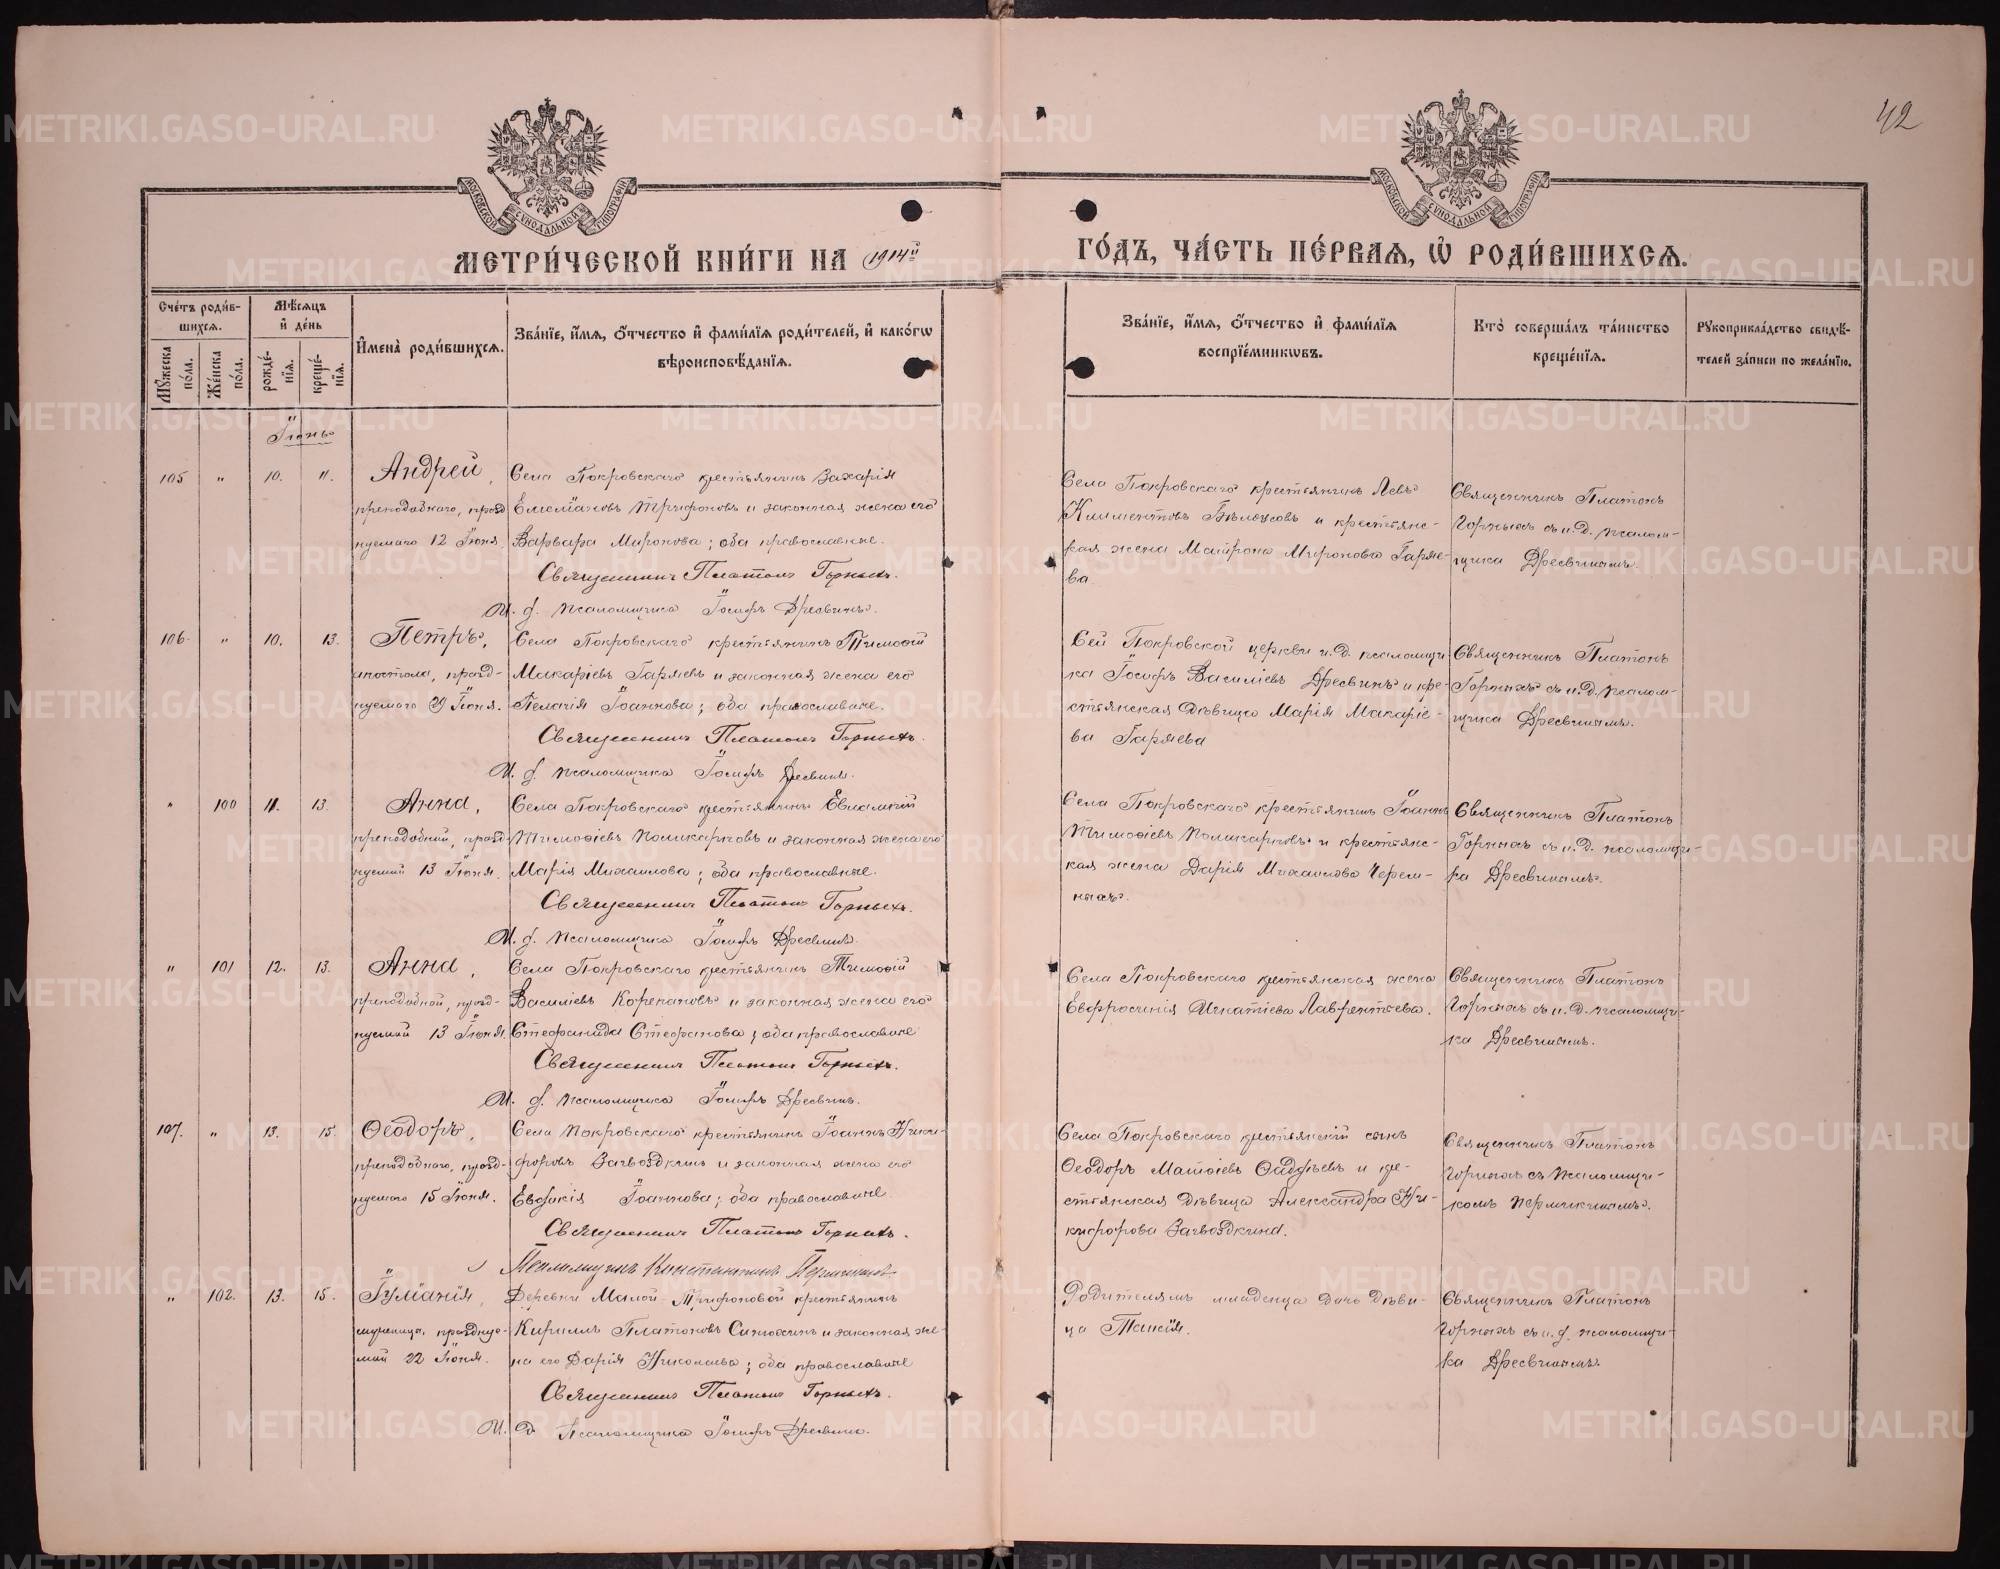 42
МОСКОВСКОЙ СѴНОДАЛЬНОЙ ТИПОГРАФІИ
МОСКОВСКОЙ СѴНОДАЛЬНОЙ ТИПОГРАФІИ
МЕТРИ́ЧЕСКОЙ КНИ́ГИ НА 1914й ГО́ДЪ, ЧА́СТЬ ПЕ́РВАѦ, Ѽ РОДИ́ВШИХСѦ.
Сче́тъ роди́в-
шихсѧ.
Мꙋ́жеска по́ла.
Же́нска по́ла.
Мѣ́сѧцъ
и҆ де́нь
рожде́-
нїѧ.
креще́-
нїѧ.
И҆мена̀ роди́вшихсѧ.
Зва́нїе, и҆́мѧ, ѻ҆́тчество и҆ фами́лїѧ роди́телей, и҆ како́гѡ
вѣроисповѣ́данїѧ.
Зва́нїе, и҆́мѧ, ѻ҆́тчество и҆ фами́лїѧ
воспрїе́мникѡвъ.
Кто̀ соверша́лъ та́инство
креще́нїѧ.
Рꙋкоприкла́дство свидѣ́-
телей за́писи по жела́нїю.
Іюнь
105 " 10. 11. Андрей,
преподобнаго, празд
нуемаго 12 Іюня
Села Покровскаго крестьянинъ Захарія
Емеліановъ Трифоновъ и законная жена его
Варвара Миронова; оба православные.
Священникъ Платонъ Горныхъ.
И. д. псаломщика Іосифъ Дресвинъ.
Села Покровскаго крестьянинъ Левъ
Климентовъ Бѣлоусовъ и крестьянс-
кая жена Миронова Гаряе-
ва
Священникъ Платонъ
Горныхъ съ и. д. псалом-
щика Дресвинымъ.
106 " 10. 13. Петръ,
апостола, празд-
нуемаго 29 Іюня.
Села Покровскаго крестьянинъ Тимофій
Макаріевъ Гаряевъ и законная жена его
Пелагія Іоаннова; оба православные.
Священникъ Платонъ Горныхъ.
И. д. псаломщика Іосифъ Дресвинъ.
Сей Покровской церкви и. д. псаломщи
ка Іосифъ Василіевъ Дресвинъ и кре-
стьянская дѣвица Марія Макаріе-
ва Гаряева
Священникъ Платонъ
Горныхъ съ и. д. псалом-
щика Дресвинымъ.
" 100 11. 13. Анна,
преподобной, празд-
нуемой 13 Іюня.
Села Покровскаго крестьянинъ Евлампій
Тимофіевъ Поликарповъ и законная жена его
Марія Михаилова; оба православные.
Священникъ Платонъ Горныхъ.
И. д. псаломщика Іосифъ Дресвинъ.
Села Покровскаго крестьянинъ Іоаннъ
Тимофіевъ Поликарповъ и крестьянс-
кая жена Дарія Михаилова Черем-
ныхъ.
Священникъ Платонъ
Горныхъ съ и. д. псаломщи-
ка Дресвинымъ.
" 101 12. 13. Анна,
преподобной, празд-
нуемой 13 Іюня.
Села Покровскаго крестьянинъ Тимофій
Василіевъ Корепановъ и законная жена его
Стефанида Стефанова; оба православные
Священникъ Платонъ Горныхъ.
И. д. псаломщика Іосифъ Дресвинъ.
Села Покровскаго крестьянская жена
Евфросинія Игнатіева Лаврентьева.
Священникъ Платонъ
Горныхъ съ и. д. псаломщи-
ка Дресвинымъ.
107. " 13. 15. Ѳеодоръ,
преподобнаго, празд-
нуемаго 15 Іюня.
Села Покровскаго крестьянинъ Іоаннъ Ники-
форовъ Загвоздкинъ и законная жена его
Евдокія Іоаннова; оба православные
Священникъ Платонъ Горныхъ.
Псаломщикъ Константинъ
Села Покровскаго крестьянскій сынъ
Ѳеодоръ и кре-
стьянская дѣвица Александра Ни-
кифорова Загвоздкина.
Священникъ Платонъ
Горныхъ съ псаломщи-
комъ Пермикинымъ.
" 102. 13. 15. Іуліанія,
мученицы, празднуе-
мой 22 Іюня.
Деревни Малой Трифоновой крестьянинъ
Кириллъ Платоновъ Синюхинъ и законная же-
на его Дарія Николаева; оба православные
Священникъ Платонъ Горныхъ.
И. д. Псаломщика Іосифъ Дресвинъ.
Родителямъ младенца дочь дѣви-
ца Таисія.
Священникъ Платонъ
Горныхъ съ и. д. псаломщи-
ка Дресвинымъ.
METRIKI.GASO-URAL.RU